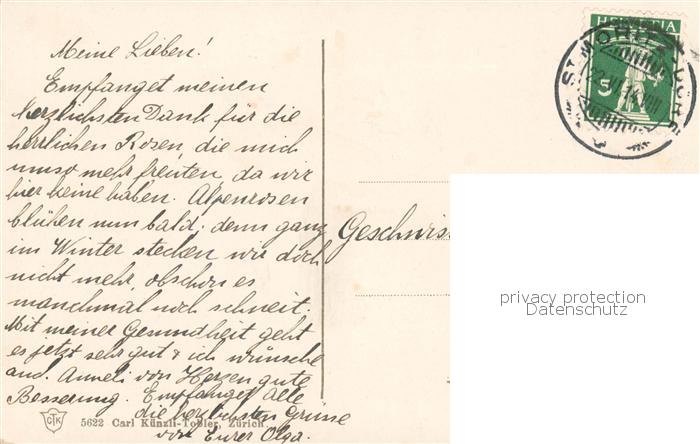 Meine Lieben!
Empfanget meinen
herzlichsten Dank für die
herrlichen Rosen, die mich
umso mehr freuten, da wir
hier keine haben. Alpenrosen
blühen nun bald, denn ganz
im Winter stecken wir doch
nicht mehr, obschon es
manchmal noch schneit.
Mit meiner Gesundheit geht
es jetzt sehr gut & ich wünsche
auch Anneli von Herzen gute
Besserung. Empfanget Alle
die herzlichsten Grüsse
von Eurer Olga.
CTK
5622 Carl Künzli-Tobler, Zürich
HELVETIA
5
ST. MORITZ-DORF
Geschwis
privacy protection
Datenschutz